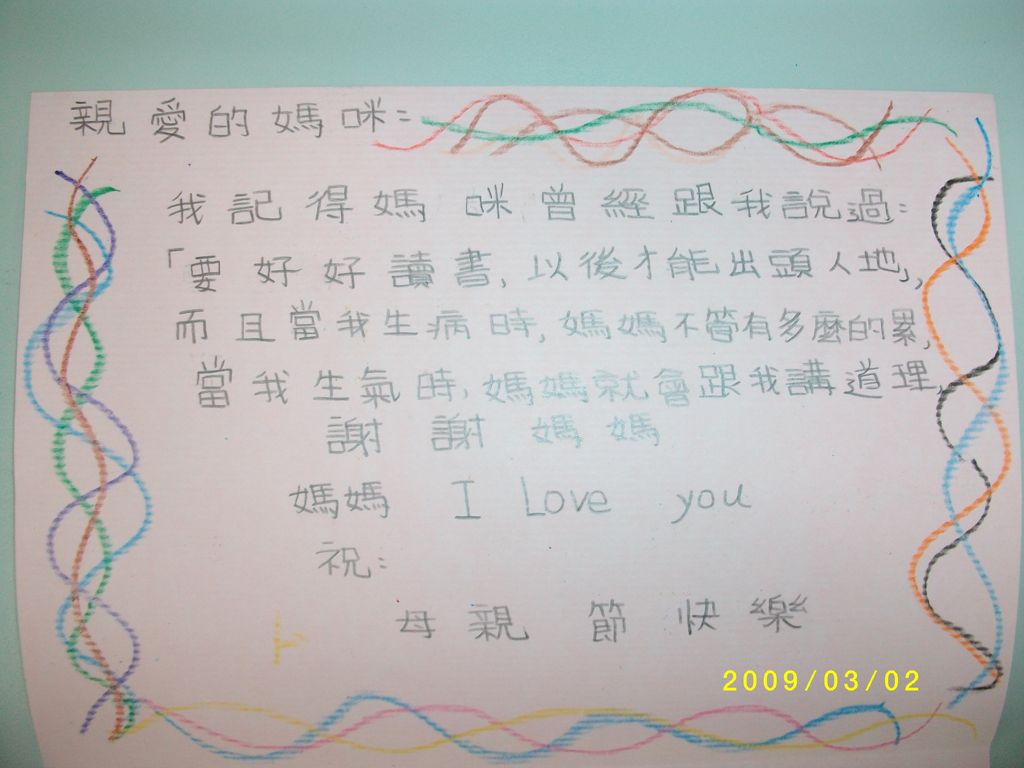 親愛的媽咪:
我記得媽咪曾經跟我說過:
「要好好讀書,以後才能出頭人地」,
而且當我生病時,媽媽不管有多麼的累,
當我生氣時,媽媽就會跟我講道理,
謝謝媽媽
媽媽 I Love you
祝:
母親節快樂
2009/03/02